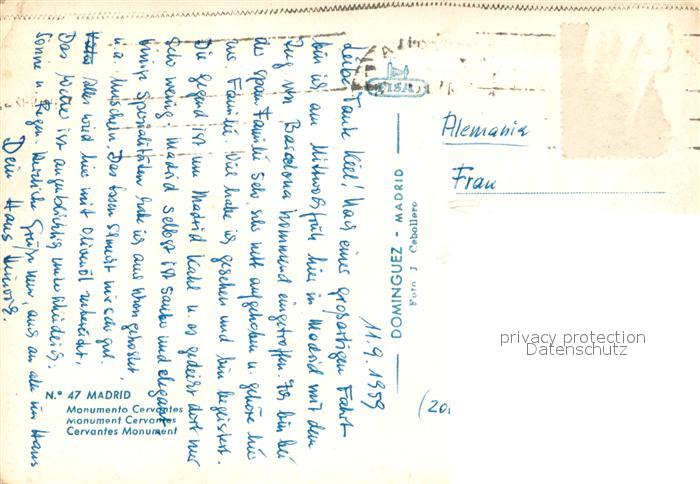 11.9.1959
Liebe Tante Käte! Nach einer großartigen Fahrt
bin ich am Mittwoch früh hier in Madrid mit dem
Zug von Barcelona kommend eingetroffen. Ich bin bei
der span. Familie sehr, sehr nett aufgehoben u. gehöre hier
zur Familie. Viel habe ich gesehen und bin begeistert.
Die Gegend ist um Madrid kahl u. es gedeiht dort nur
sehr wenig. Madrid selbst ist sauber und elegant.
Einige Spezialitäten habe ich auch schon gekostet,
u.a. Muscheln. Das Essen schmeckt mir sehr gut.
alles wird hier mit Olivenöl zubereitet,
Das Wetter ist augenblicklich unterschiedlich:
Sonne u. Regen. Herzliche Grüße nun, auch an alle im Haus
Dein Hans Heinrich.
DOMINGUEZ - MADRID
Foto J Cebollero
VISA
Alemania
Frau
(20
N.º 47 MADRID
Monumento Cervantes
Monument Cervantes
Cervantes Monument
privacy protection
Datenschutz